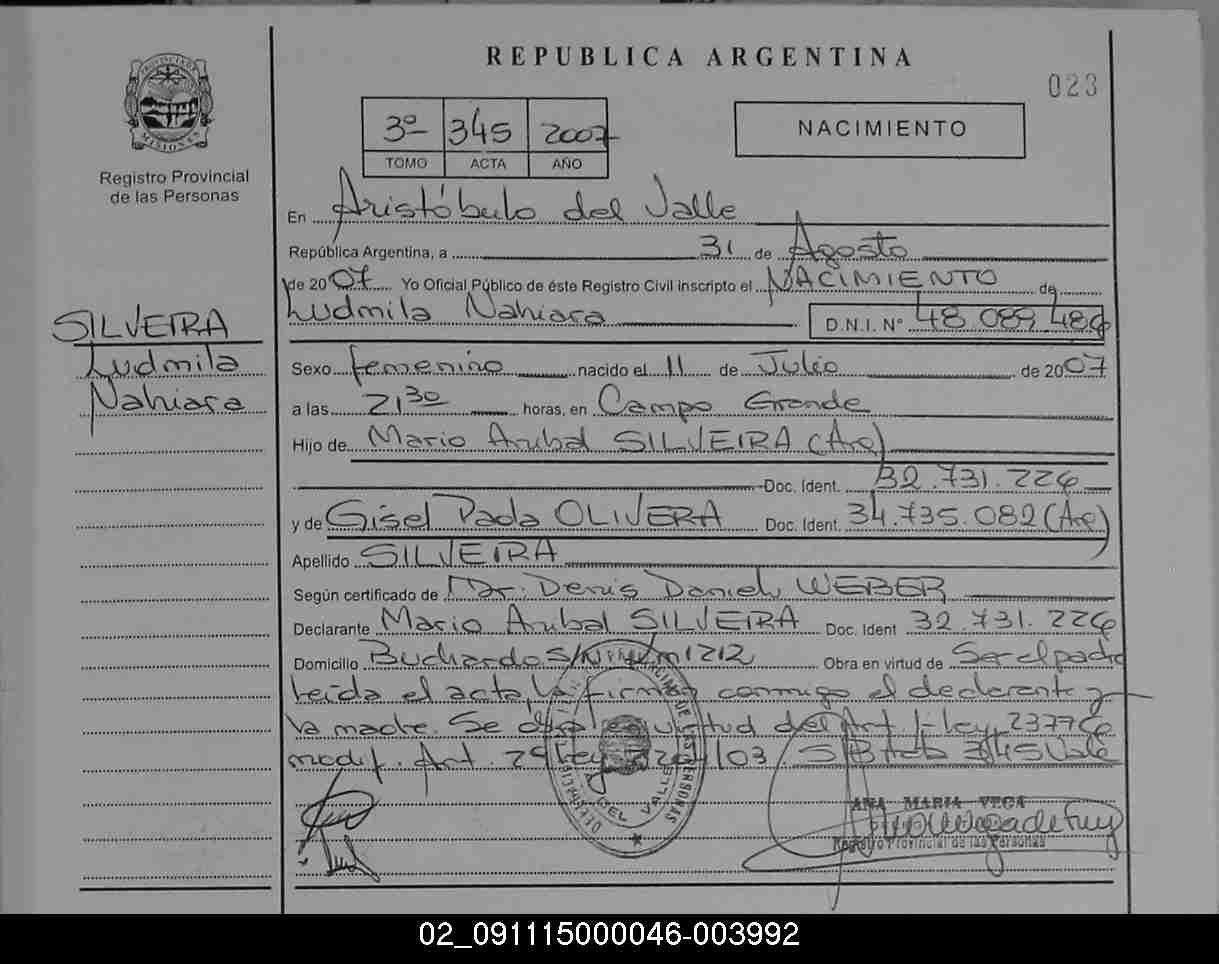 REPUBLICA ARGENTINA
023
PROVINCIA DE MISIONES
Registro Provincial
de las Personas
3º 345 2007
TOMO ACTA AÑO
NACIMIENTO
En Aristóbulo del Valle
República Argentina, a 31 de Agosto
de 2007 Yo Oficial Público de éste Registro Civil inscripto el NACIMIENTO de
Ludmila Nahiara D.N.I. Nº 48.089.486
SILVEIRA
Ludmila
Nahiara
Sexo femenino nacido el 11 de Julio de 2007
a las 21 30 horas, en Campo Grande
Hijo de Mario Anibal SILVEIRA (Arg)
Doc. Ident. 32.731.226
y de Gisel Paola OLIVERA Doc. Ident. 34.735.082 (Arg)
Apellido SILVEIRA
Según certificado de Dr. Denis Daniel WEBER
Declarante Mario Anibal SILVEIRA Doc. Ident 32.731.226
Domicilio Buchardo S/N 1212 Obra en virtud de Ser el padre
Leída el acta, la firman conmigo el declarante y
la madre. Se en virtud del Art. 1- Ley 23776
modif. Art. 29 Ley /03 S/B 345 Vale
DEL VALLE
ANA MARIA VEGA
Registro Provincial de las Personas
02_091115000046-003992